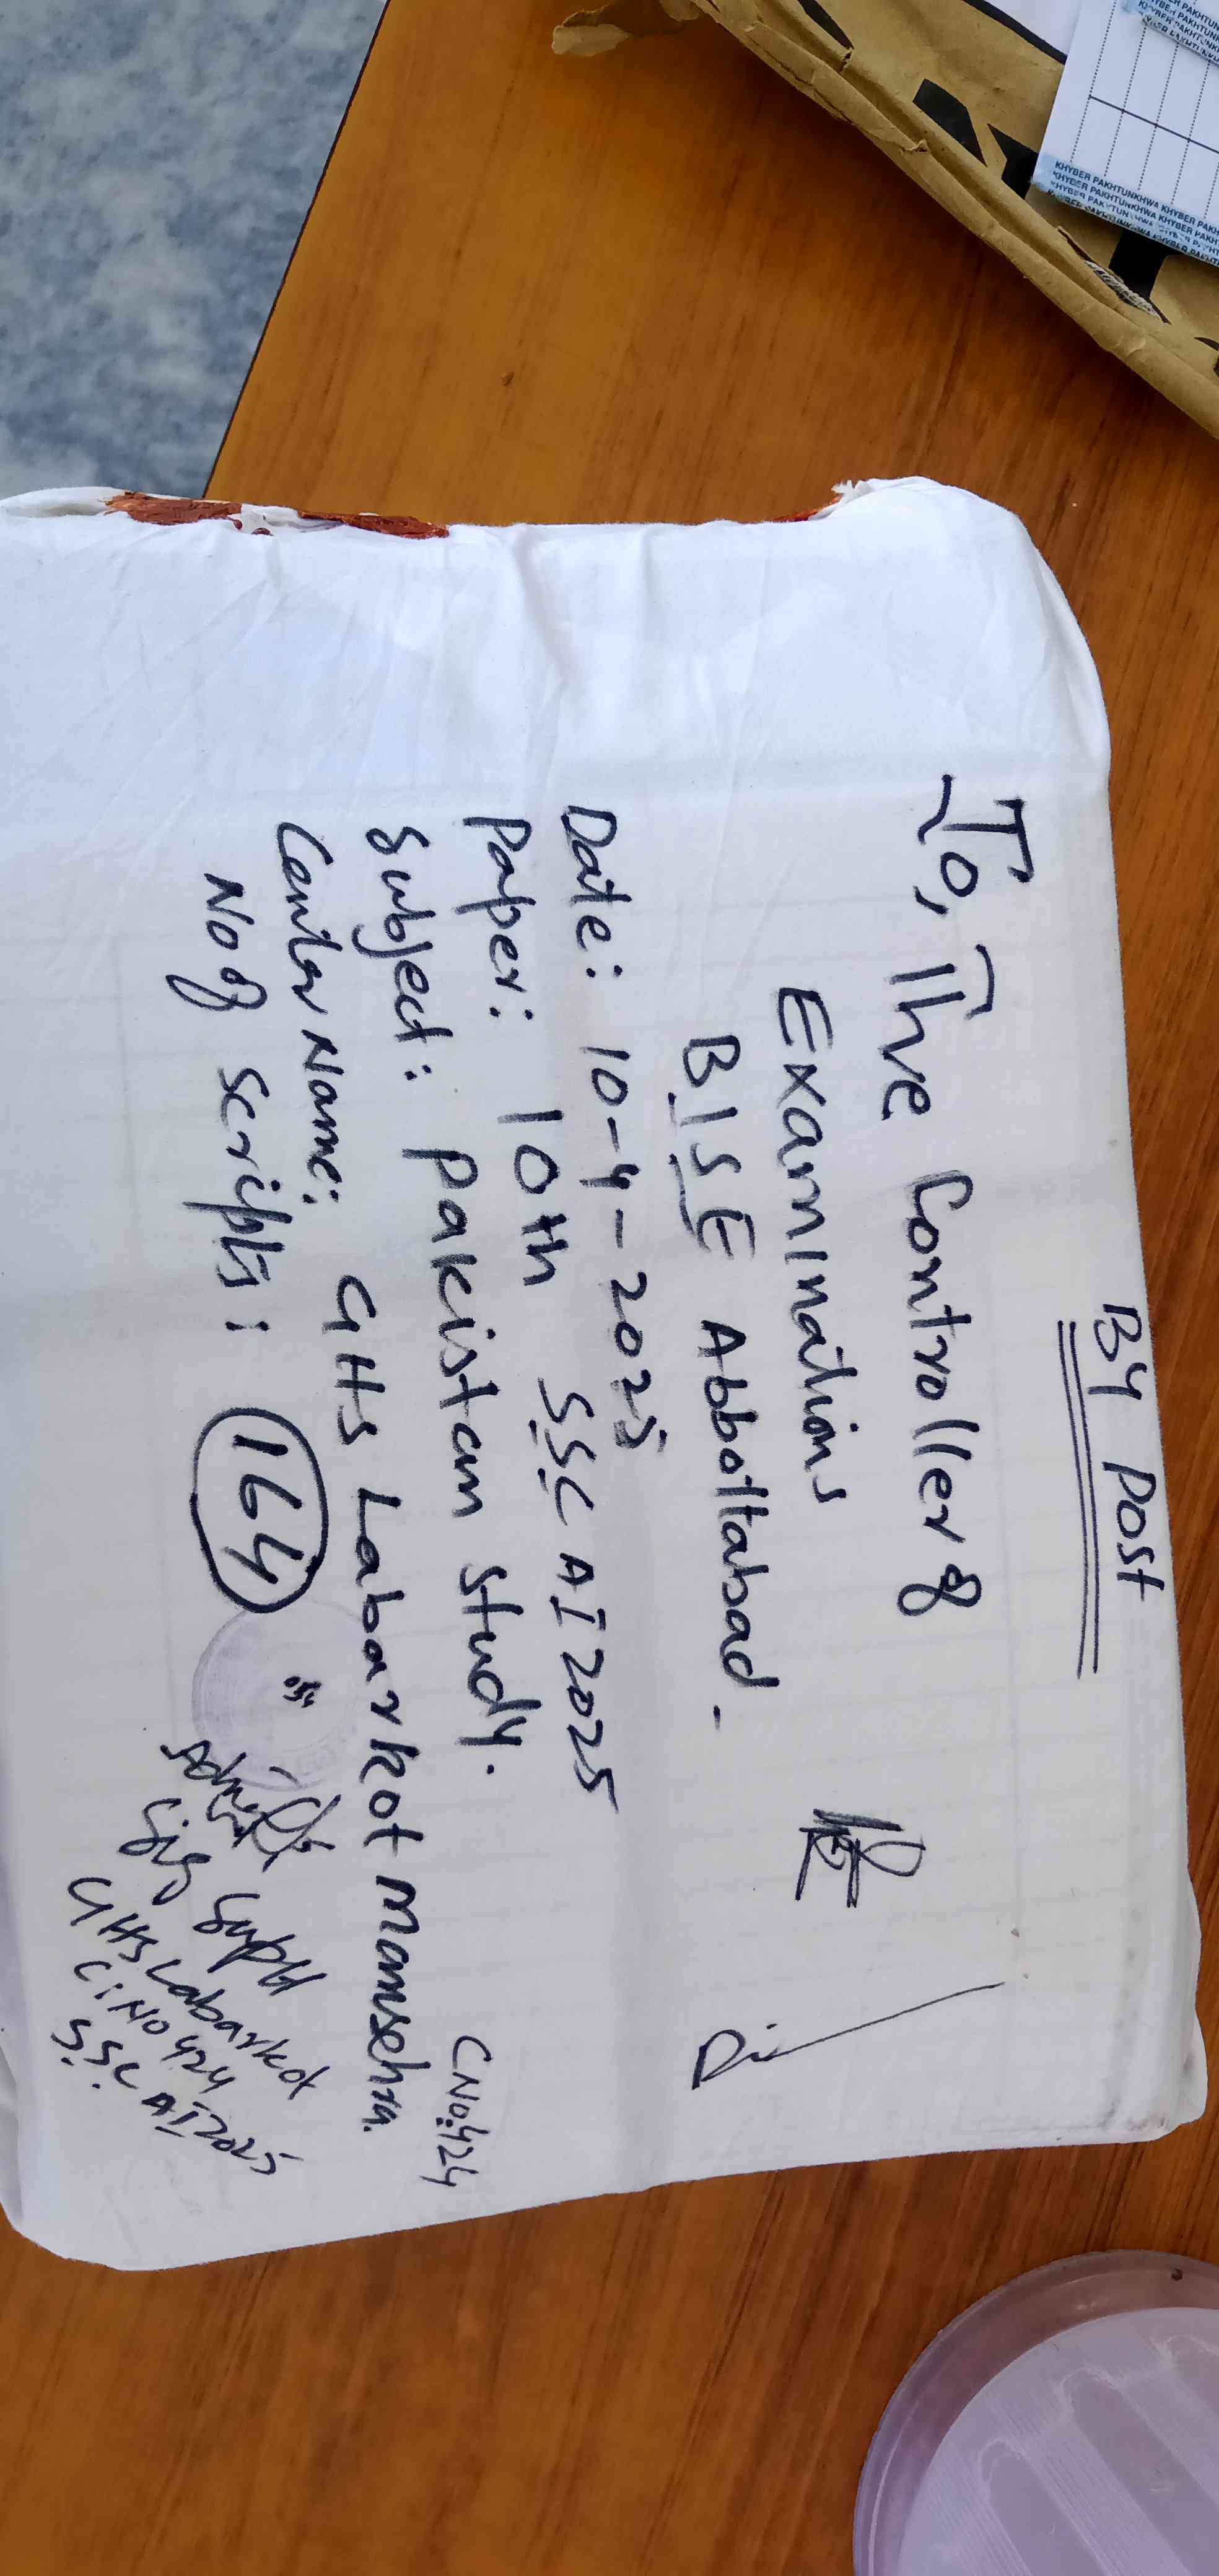 By Post
To, The Controller of
Examinations
B.I.S.E Abbottabad.
Date: 10-4-2025
Paper: 10th SSC AI 2025
Subject: Pakistan Study.
CNo:424
Center Name: GHS Labarkot Mansehra.
No of Scripts: 164
Sig Supdt
GHS Labarkot
C.NO 424
SSC AI2025
KHYBER PAKHTUNKHWA KHYBER PAKH
KHYBER PAKHTUNKHWA KHYBER PAKH